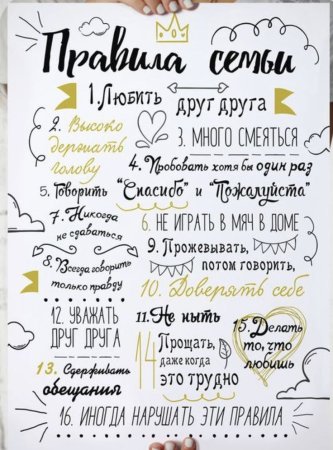 Правила семьи
1. Любить друг друга
2. Высоко
держать
голову
3. МНОГО СМЕЯТЬСЯ
4. Пробовать хотя бы один раз
5. Говорить "Спасибо" и "Пожалуйста"
6. НЕ ИГРАТЬ В МЯЧ В ДОМЕ
7. Никогда
не сдаваться
8. Всегда говорить
только правду
9. Прожевывать,
потом говорить,
10. Доверять себе
11. Не ныть
12. УВАЖАТЬ
ДРУГ ДРУГА
13. Сдерживать
обещания
14 Прощать,
даже когда
это трудно
15. Делать
то, что
любишь
16. ИНОГДА НАРУШАТЬ ЭТИ ПРАВИЛА